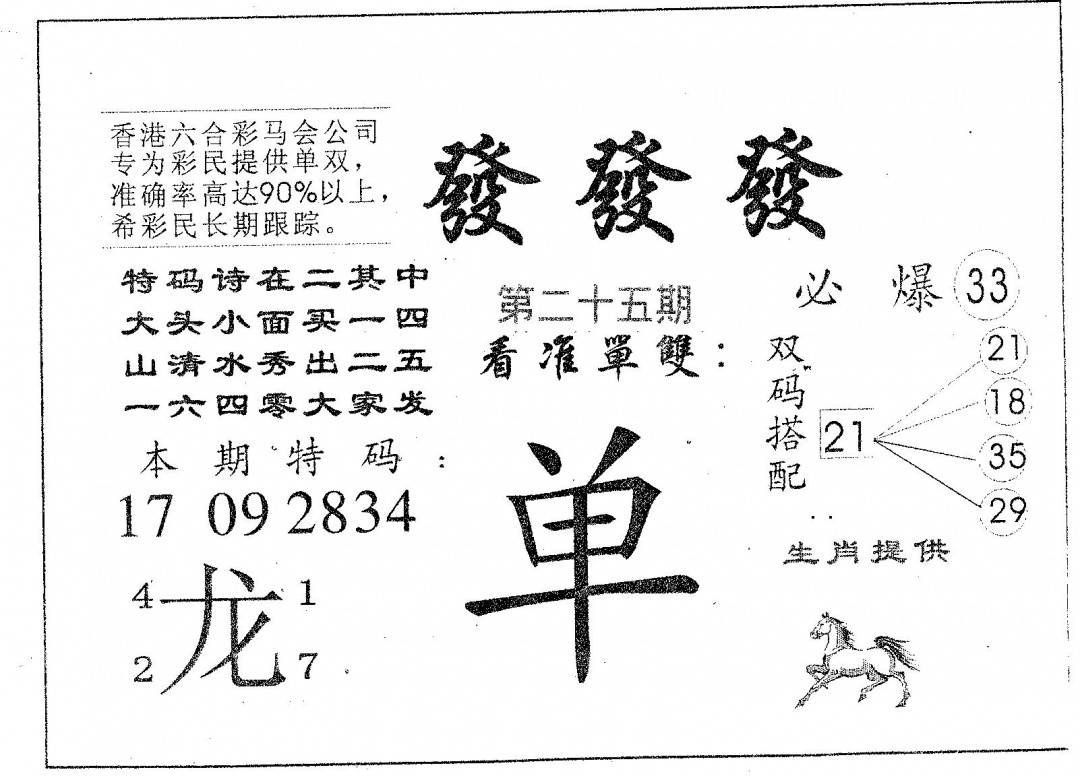 香港六合彩马会公司
专为彩民提供单双，
准确率高达90%以上，
希彩民长期跟踪。
發發發
特码诗在二其中
大头小面买一四
山清水秀出二五
一六四零大家发
第二十五期
看准單雙：
单
必爆33
双码搭配
21
21
18
35
29
本期特码：
17 09 2834
龙
4 1
2 7
生肖提供